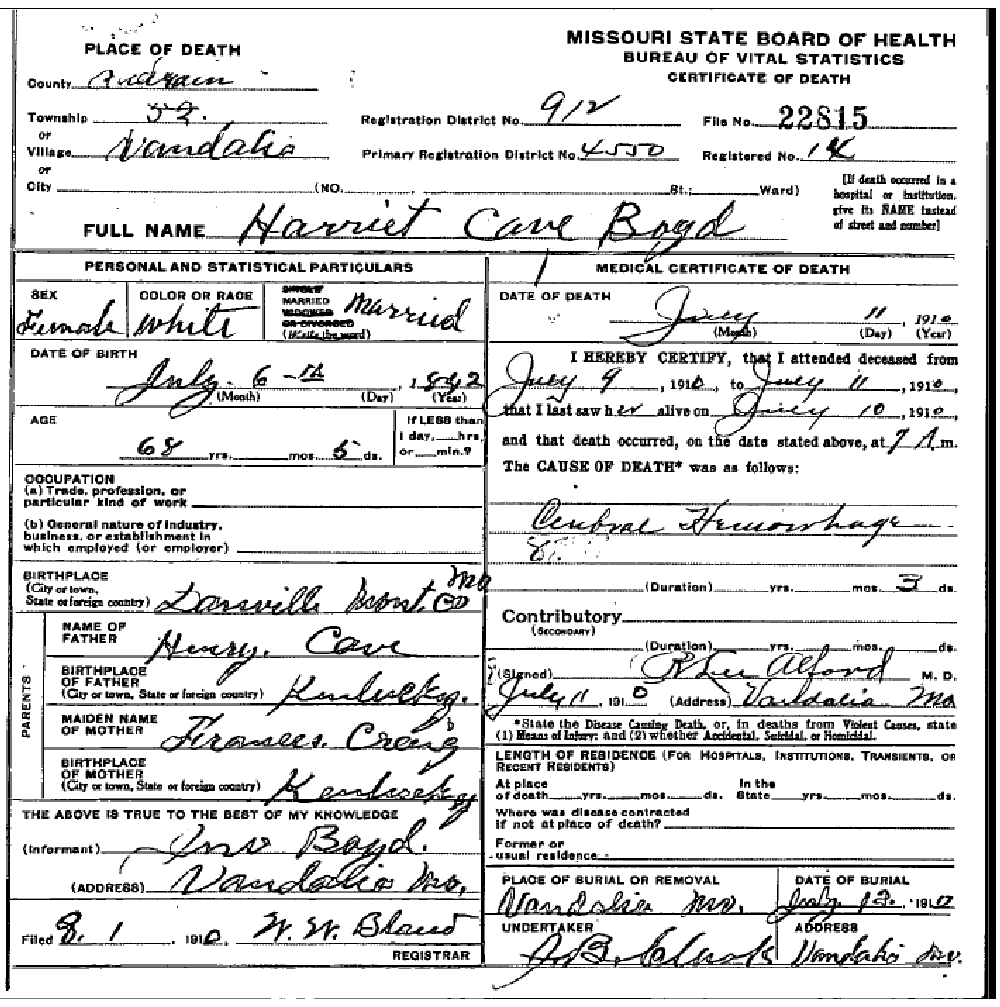 MISSOURI STATE BOARD OF HEALTH
BUREAU OF VITAL STATISTICS
CERTIFICATE OF DEATH
PLACE OF DEATH
County Audrain
Township 52.
or
Village Vandalia
or
City (NO. St.; Ward)
Registration District No. 912
File No. 22815
Primary Registration District No. 4550
Registered No. 14
[If death occurred in a
hospital or institution,
give its NAME instead
of street and number]
FULL NAME Harriet Cave Boyd
PERSONAL AND STATISTICAL PARTICULARS
SEX
Female
COLOR OR RACE
White
SINGLE
MARRIED
WIDOWED
OR DIVORCED
(Write the word)
Married
DATE OF BIRTH
July. 6-th, 1842
(Month) (Day) (Year)
AGE
68 yrs. mos. 5 ds.
If LESS than
1 day, hrs.
or min.?
OCCUPATION
(a) Trade, profession, or
particular kind of work
(b) General nature of industry,
business, or establishment in
which employed (or employer)
BIRTHPLACE
(City or town,
State or foreign country) Danville Mont. Co Mo
PARENTS
NAME OF
FATHER
Henry. Cave
BIRTHPLACE
OF FATHER
(City or town, State or foreign country) Kentucky.
MAIDEN NAME
OF MOTHER
Frances. Craig
BIRTHPLACE
OF MOTHER
(City or town, State or foreign country) Kentucky
THE ABOVE IS TRUE TO THE BEST OF MY KNOWLEDGE
(Informant) Jno Boyd.
(ADDRESS) Vandalia Mo,
Filed 8. 1, 1910 W. W. Bland
REGISTRAR
MEDICAL CERTIFICATE OF DEATH
DATE OF DEATH
July 11, 1910
(Month) (Day) (Year)
I HEREBY CERTIFY, that I attended deceased from
July 9, 1910, to July 11, 1910,
that I last saw her alive on July 10, 1910,
and that death occurred, on the date stated above, at 7 A m.
The CAUSE OF DEATH* was as follows:
Cerebral Hemorrhage
(Duration) yrs. mos. 3 ds.
Contributory
(SECONDARY)
(Duration) yrs. mos. ds.
(Signed) R Lee Alford M. D.
July 11, 1910 (Address) Vandalia Mo
*State the Disease Causing Death, or, in deaths from Violent Causes, state
(1) Means of Injury; and (2) whether Accidental, Suicidal, or Homicidal.
LENGTH OF RESIDENCE (FOR HOSPITALS, INSTITUTIONS, TRANSIENTS, OR
RECENT RESIDENTS)
At place
of death yrs. mos. ds.
In the
State yrs. mos. ds.
Where was disease contracted
if not at place of death?
Former or
usual residence
PLACE OF BURIAL OR REMOVAL
Vandalia Mo.
DATE OF BURIAL
July 12, 1910
UNDERTAKER
ADDRESS
Vandalia Mo.